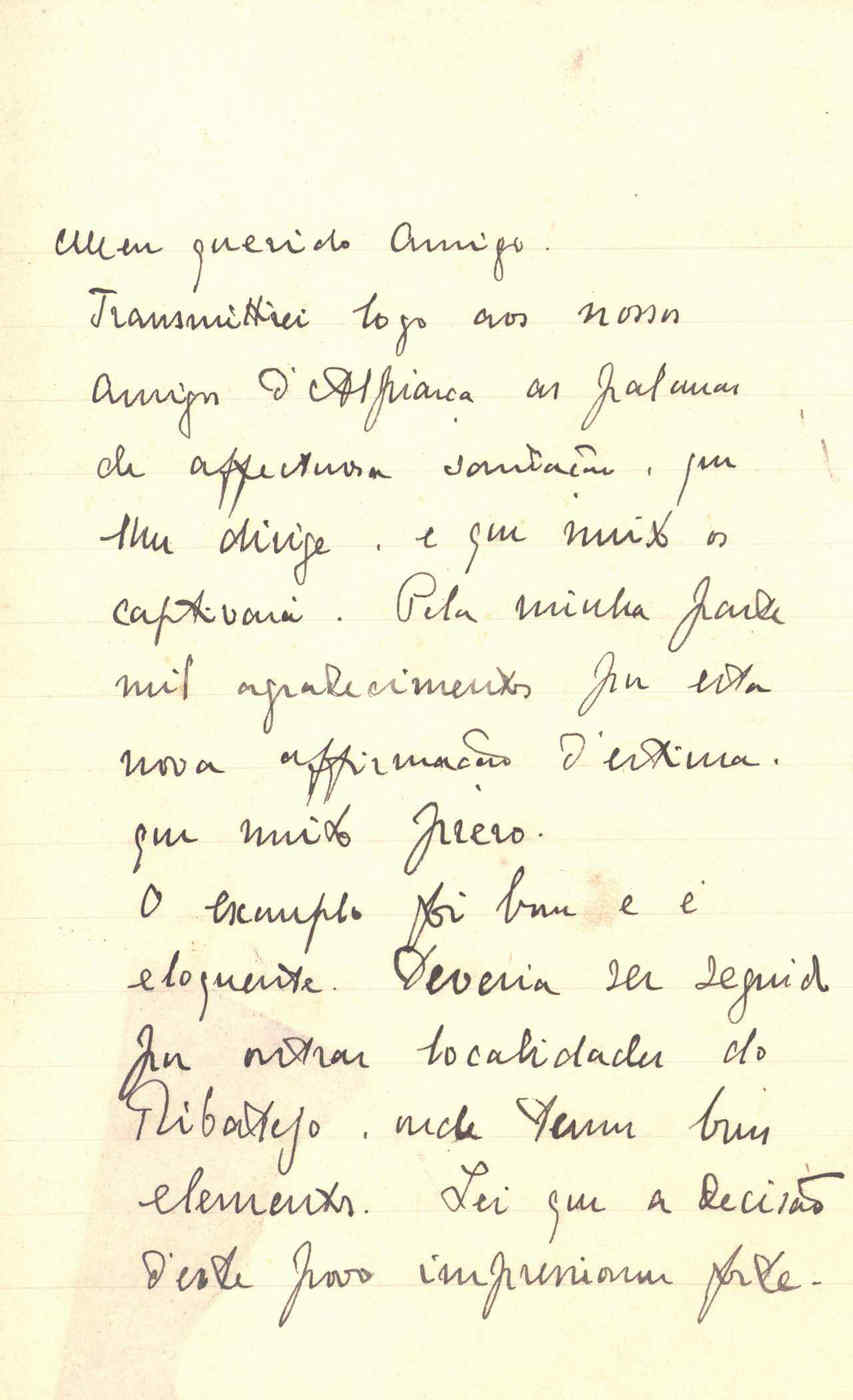 Meu querido Amigo.
Transmittirei logo aos nossos
Amigos d'Alpiarça as palavras
de affectuosa saudação, que
lhes dirige, e que muito os
captivará. Pela minha parte
mil agradecimentos por esta
nova affirmação d'estima,
que muito prezo.
O exemplo foi bom e é
eloquente. Deveria ser seguido
por outras localidades do
Ribatejo, onde temos bons
elementos. Sei que a decisão
d'este povo impressionou forte-